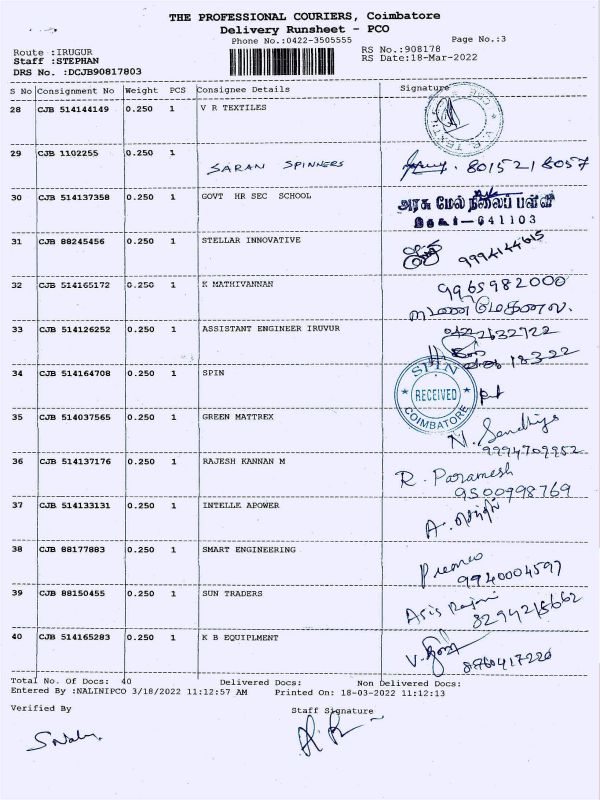 THE PROFESSIONAL COURIERS, Coimbatore
Delivery Runsheet - PCO
Phone No.:0422-3505555
Page No.:3
Route :IRUGUR
RS No.:908178
Staff :STEPHAN
RS Date:18-Mar-2022
DRS No. :DCJB90817803
S No Consignment No Weight PCS Consignee Details Signature
28 CJB 514144149 0.250 1 V R TEXTILES
29 CJB 1102255 0.250 1 SARAN SPINNERS 8015218057
30 CJB 514137358 0.250 1 GOVT HR SEC SCHOOL அரசு மேல் நிலைப் பள்ளி
641103
31 CJB 88245456 0.250 1 STELLAR INNOVATIVE 9994144615
32 CJB 514165172 0.250 1 K MATHIVANNAN 9965982000
33 CJB 514126252 0.250 1 ASSISTANT ENGINEER IRUVUR 2632722
18-3-22
34 CJB 514164708 0.250 1 SPIN SPIN RECEIVED COIMBATORE
35 CJB 514037565 0.250 1 GREEN MATTREX N. Sandhiya
9994709952
36 CJB 514137176 0.250 1 RAJESH KANNAN M R. Paramesh
9500998769
37 CJB 514133131 0.250 1 INTELLE APOWER A.
38 CJB 88177883 0.250 1 SMART ENGINEERING
9940004597
39 CJB 88150455 0.250 1 SUN TRADERS Asis
8294215662
40 CJB 514165283 0.250 1 K B EQUIPLMENT V.
8760417220
Total No. Of Docs: 40 Delivered Docs: Non Delivered Docs:
Entered By :NALINIPCO 3/18/2022 11:12:57 AM Printed On: 18-03-2022 11:12:13
Verified By Staff Signature